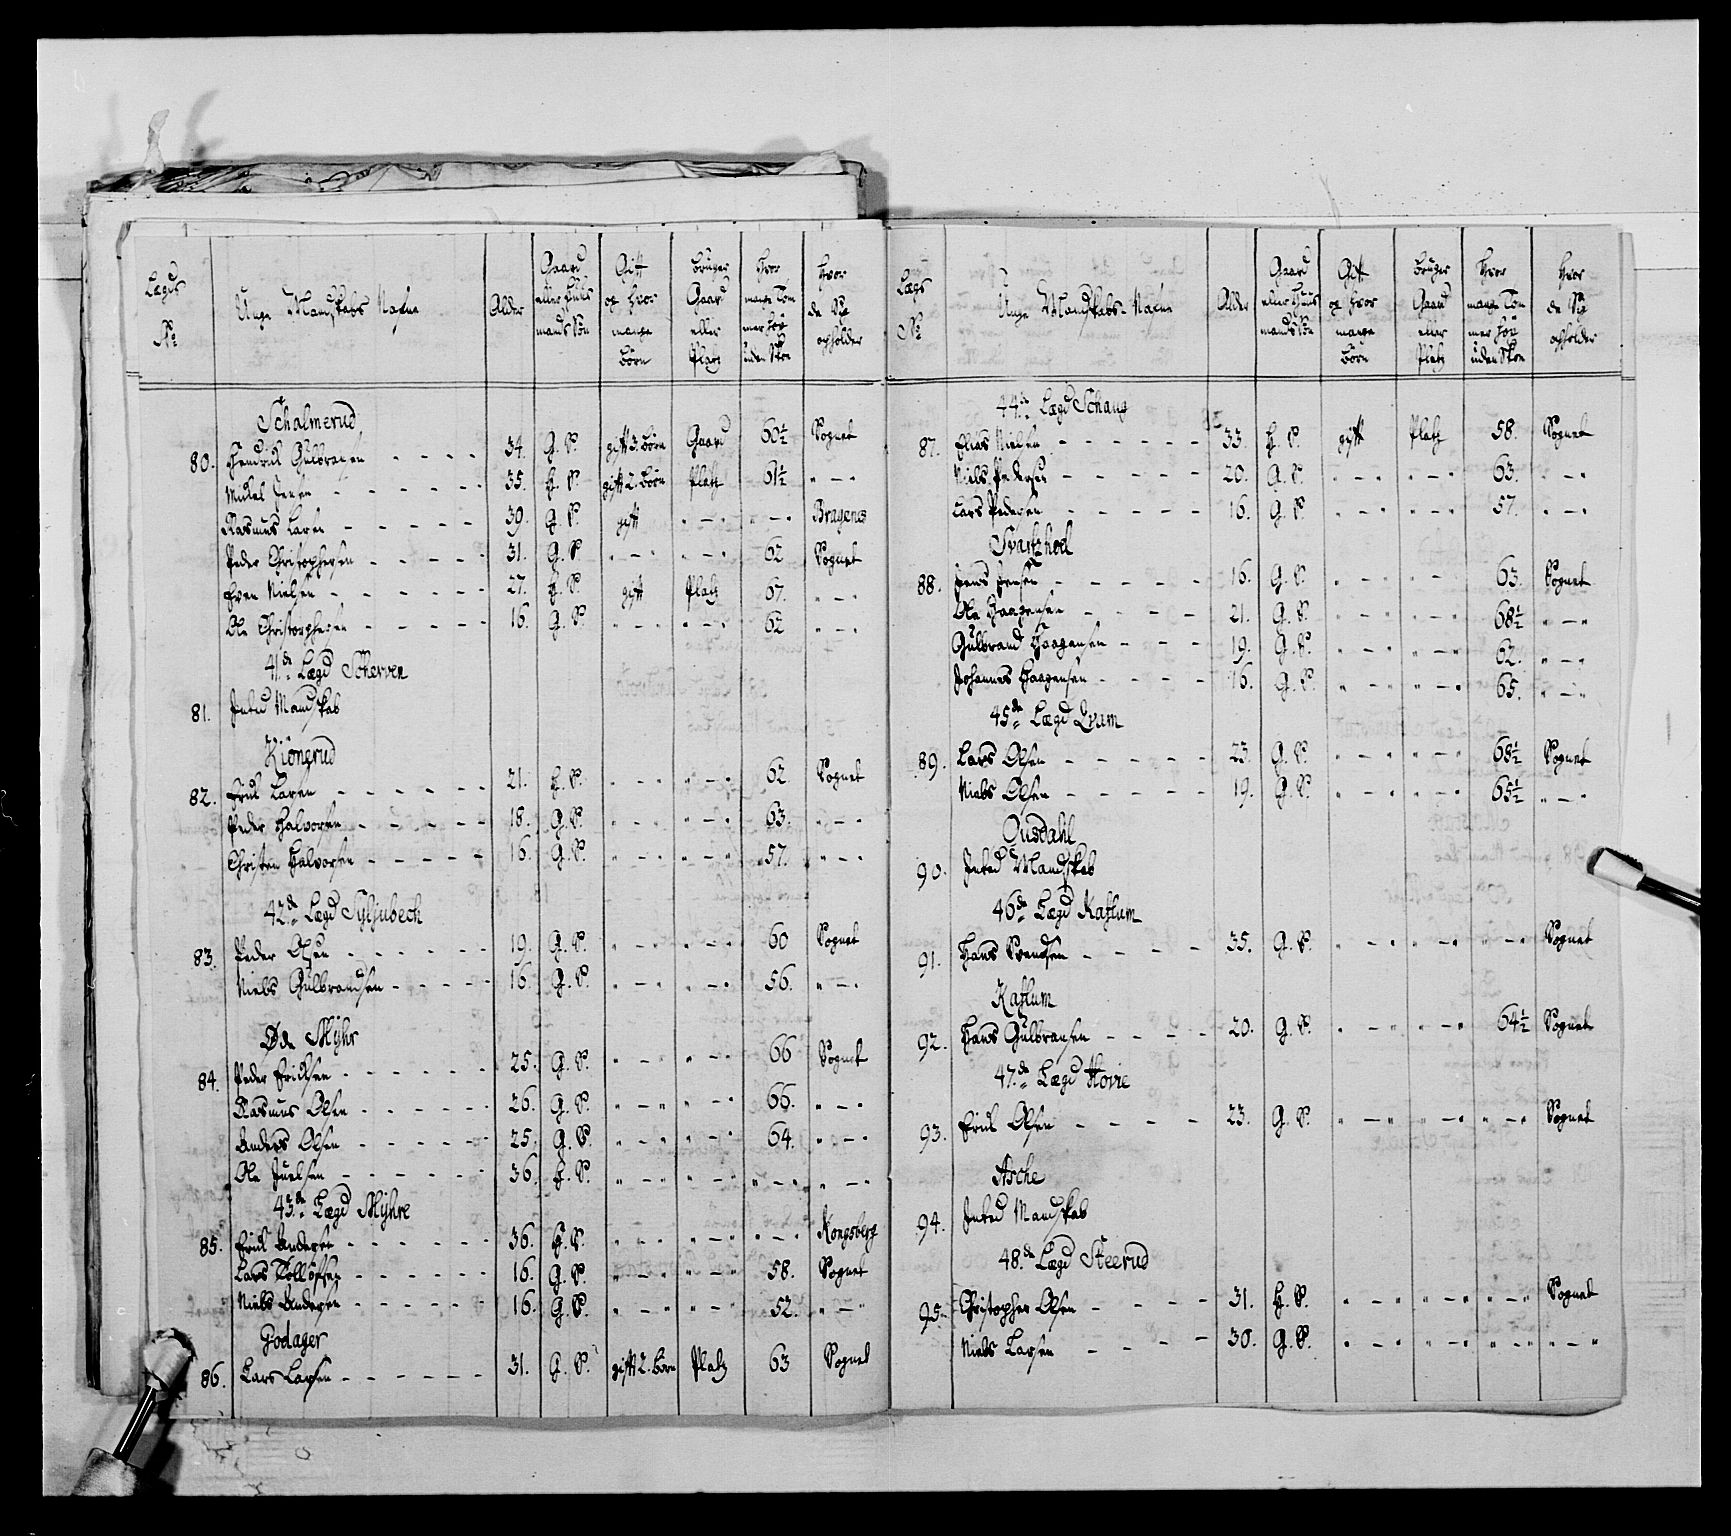 Lægds No | Unge Mandskabs Nafne | Alder | Gaard eller Huus mands Søn | Gift og hvor mange Børn | bruger Gaard eller Platz | hvor mange Tom mer høy uden Skoe | hvor de Sig opholder
Schalmerud
80. Hendrich Gulbransen - - - - 34. G. S. gift 3. Børn Gaard 60½ Sognet
Mickel Jensen - - - - 35. H. S. gift 2. Børn Platz 61½ " - "
Rasmus Larsen - - - - 39. G. S. gift " - " " - " Bragenes
Peder Christophersen - - - - 31. G. S. " - " " - " 62 Sognet
Even Nielsen - - - - 27. H. S. gift Platz 67. " - "
Ole Christophersen - - - - 16. G. S. " - " " - " 62 " - "
41de Lægd Scherven
81. Inted Mandskab
Kiöngrud
82. Erich Larsen - - - - 21. H. S. " - " " - " 62 Sognet
Peder Halvorsen - - - - 18. G. S. " - " " - " 63. " - "
Christen Halvorsen - - - - 16. G. S. " - " " - " 57. " - "
42de Lægd Syljubech
83. Peder Olsen - - - - 19. G. S. " - " " - " 60 Sognet
Niels Gulbrandsen - - - - 16. G. S. " - " " - " 56. " - "
Øde Myhr
84. Peder Erichsen - - - - 25. G. S. " - " " - " 66 Sognet
Rasmus Olsen - - - - 26. G. S. " - " " - " 66. " - "
Anders Olsen - - - - 25. G. S. " - " " - " 64. " - "
Ole Juelsen - - - - 36. H. S. " - " " - " " - " " - "
43de Lægd Myhre
85. Erich Andersen - - - - 36. H. S. " - " " - " " - " Kongsberg
Lars Tollöfsen - - - - 16. G. S. " - " " - " 58. Sognet
Niels Andersen - - - - 16. G. S. " - " " - " 52. " - "
Godager
86. Lars Larsen - - - - 31. G. S. gift 2. Børn Platz 63 Sognet
Lægs No | Unge Mandskabs Nafne | Alder | Gaard eller Huus mands Søn | Gift og hvor mange Børn | bruger Gaard eller Platz | hvor mange Tom mer høy uden Skoe | hvor de Sig opholder
44de Lægd Schaug
87. Elias Nielsen - - - - 33. H. S. gift Platz 58. Sognet
Niels Pedersen - - - - 20. G. S. " - " " - " 63. " - "
Lars Pedersen - - - - 16. G. S. " - " " - " 57. " - "
Svartzhoel
88. Jens Jensen - - - - 16. G. S. " - " " - " 63. Sognet
Ole Haagensen - - - - 21. G. S. " - " " - " 68½ " - "
Gulbrand Haagensen - - - 19. G. S. " - " " - " 62. " - "
Johannes Haagensen - - - - 16. G. S. " - " " - " 65. " - "
45de Lægd Lrum
89. Lars Olsen - - - - 23. G. S. " - " " - " 68½ Sognet
Niels Olsen - - - - 19. G. S. " - " " - " 65½ " - "
Ousdahl
90. Inted Mandskab
46de Lægd Kaflum
91. Hans Svendsen - - - - 35. G. S. " - " " - " " - " Sognet
Kaflum
92. Hans Gulbransen - - - - 20. G. S. " - " " - " 64½ Sognet
47de Lægd Hovie
93. Erich Olsen - - - - 23. G. S. " - " " - " " - " Sognet
Asche
94. Inted Mandskab
48de Lægd Steerud
95. Christopher Olsen - - - - 31. H. S. " - " " - " " - " Sognet
Niels Larsen - - - - 30. G. S. " - " " - " " - " " - "